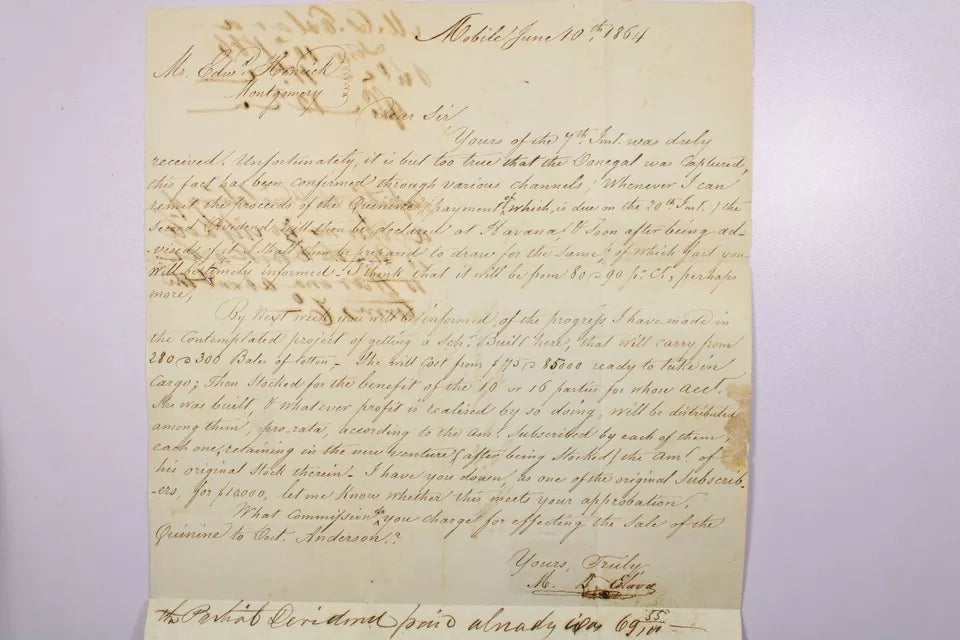 Mobile June 10th, 1864
Mr. Edwd. Hanrick
Montgomery
Dear Sir
Yours of the 7th. Inst. was duly
received. Unfortunately, it is but too true that the Donegal was Captured,
this fact has been confirmed through various channels; Whenever I can
remit the proceeds of the Quinine (payment of which, is due on the 20th. Inst.) the
Second Dividend will then be declared at Havana & Soon after being ad-
-vised of it I shall then be prepared to draw for the Same, of which fact you
will be timely informed. I think that it will be from 80 @ 90 pr. Ct., perhaps
more,
By Next week you will be informed, of the progress I have made in
the Contemplated project of getting a Schr. Built here, that will carry from
280 @ 300 Bales of Cotton,- She will Cost from $75 @ 85000 ready to take in
Cargo; Then Stocked for the benefit of the 10 or 16 parties for whose acct.
She was built, & whatever profit is realised by so doing, will be distributed
among them, pro-rata, according to the Amt. Subscribed by each of them,
each one, retaining in the new venture (after being Stocked) the Amt. of
his original Stock therein.- I have you down, as one of the original Subscrib-
-ers, for $10000, let me Know whether this meets your approbation,
What Commission do you charge for effecting the Sale of the
Quinine to Govt. Anderson?
Yours, Truly
M. D. Eslava
the Partial Dividend paid already was 69 55/100